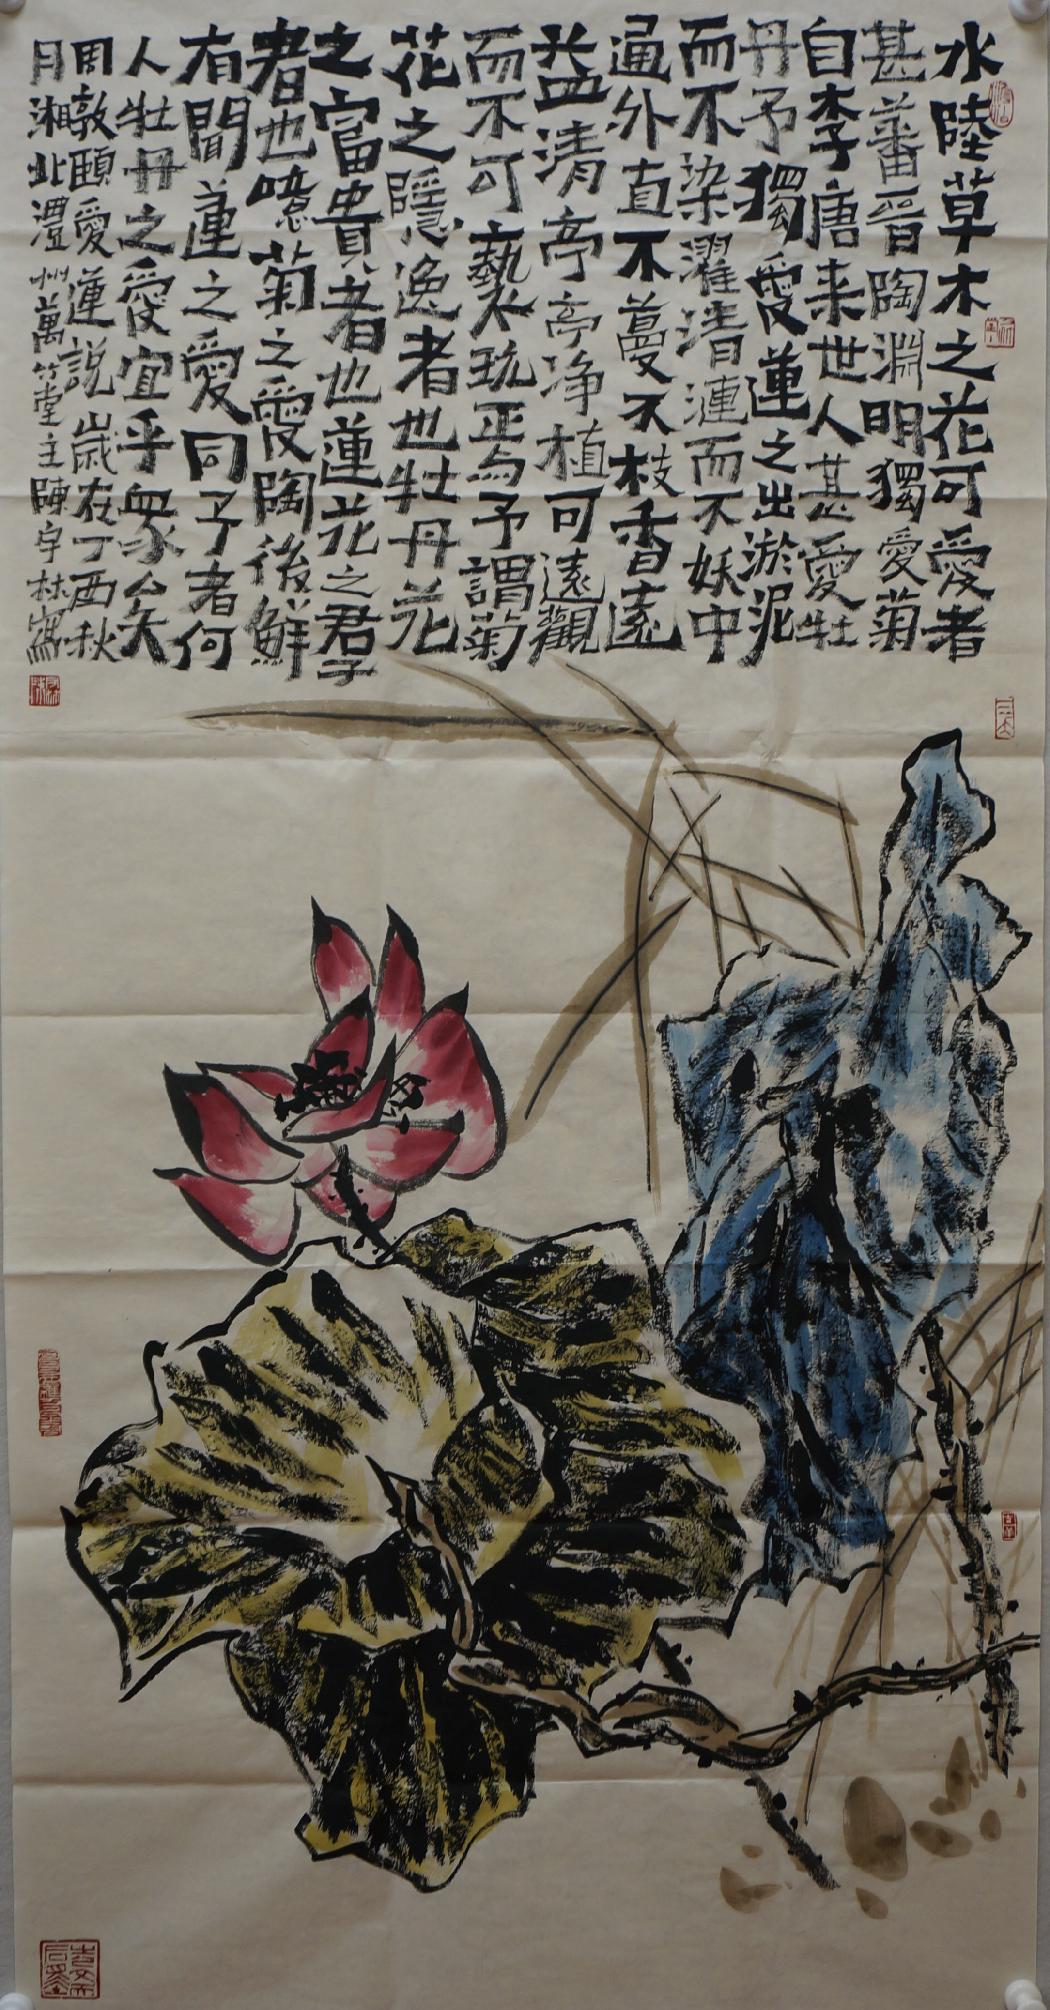 水陸草木之花可愛者
甚蕃晉陶淵明獨愛菊
自李唐来世人甚愛牡
丹予獨愛蓮之出淤泥
而不染濯清漣而不妖中
通外直不蔓不枝香遠
益清亭亭净植可遠觀
而不可褻玩焉予謂菊
花之隱逸者也牡丹花
之富貴者也蓮花之君子
者也噫菊之愛陶後鮮
有聞蓮之愛同予者何
人牡丹之愛宜乎衆矣
周敦頤愛蓮説歲在丁酉秋
月湘北澧州萬竹堂主陳字林寫